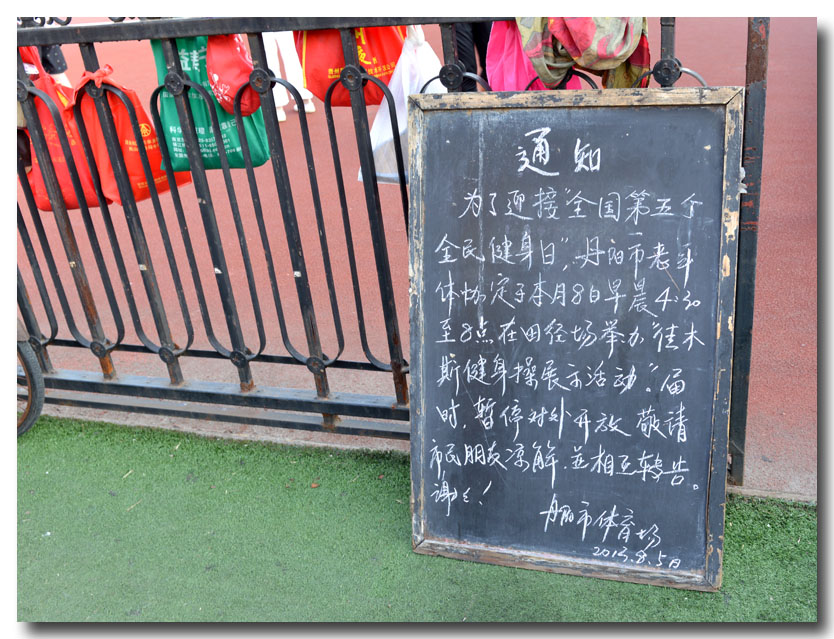 通知
为了迎接"全国第五个
全民健身日",丹阳市老年
体协定于本月8日早晨4:30
至8点在田径场举办"佳木
斯健身操展示活动"。届
时,暂停对外开放 敬请
市民朋友凉解,並相互转告。
谢々!
丹阳市体育场
2013.8.5日